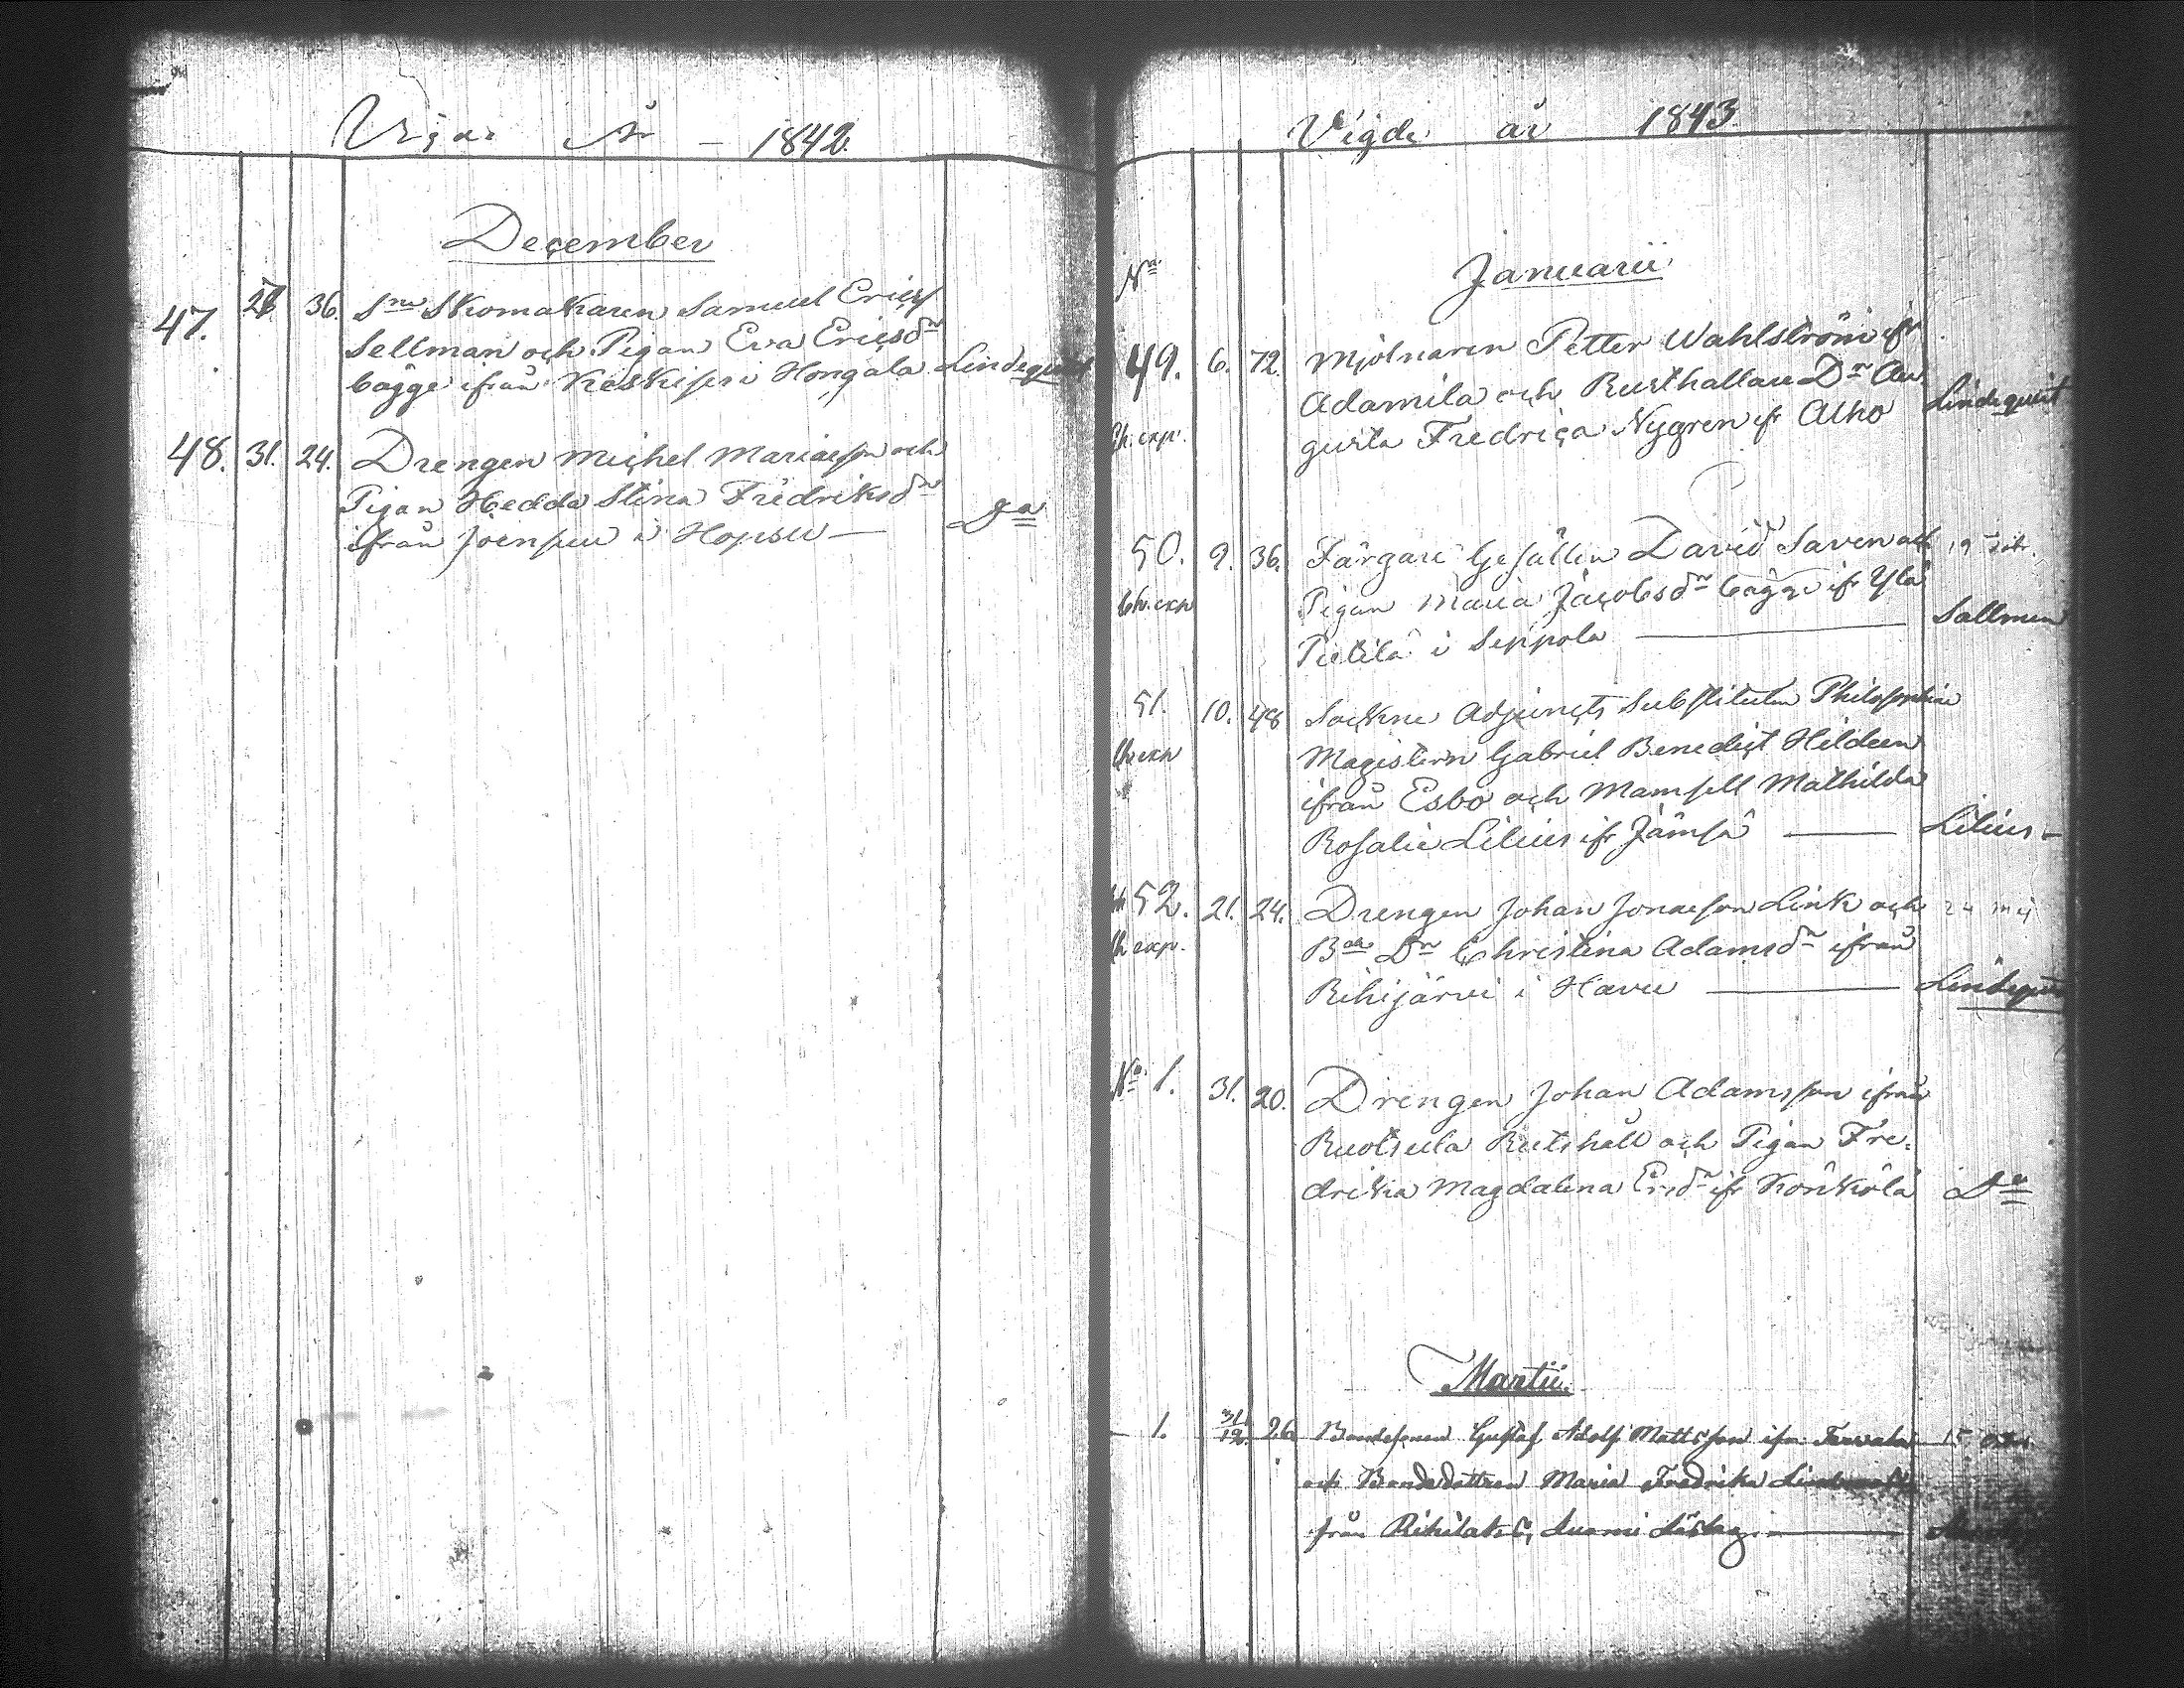 Vigde År – 1842.
December
47. 27 36. Snn Skomakaren Samuel Erics
Sellman och Pigan Eva Ericsdr
bägge ifrån Keskipere Hongola Lindequist
48. 31. 24. Drengen Michel Mariaeson och
Pigan Hedda Stina Fredriksdr
ifrån Joenpuu i Hopsu — Do
Vigde år 1843.
No
Januarii
49. 6. 72. Mjölnaren Petter Wahlström ifr
Adamila och Rusthållare Dr Au
gusta Fredrica Nygren ifr Alho Lindequist
Ch. exp.
50. 9. 36. Färgare Gesällen David Saven och 19
Pigan Maria Jacobsdr bägge ifr Ylä
Ch. exp
Pietilä i Seppola — Sallmen
51. 10. 48 Sockne Adjuncts Substituten Philosophiae
Magistern Gabriel Benedict Hildeen
Ch. exp
ifrån Esbo och Mamsell Mathilda
Rosalie Lilius ifr Jämsä — Lilius –
52. 21. 24. Drengen Johan Jonaeson Link och 24 maj
Bde Dr Christina Adamsdr ifrån
Ch exp.
Rihijärvi i Havu — Lindequist
No 1. 31. 20. Drengen Johan Adamsson ifrån
Ruotsula Rusthåll och Pigan Fre-
drika Magdalena Ersdr ifr Könkölä Do
Martii.
1. 31/12. 26 Bondesonen Gustaf Adolf Mattsson ifrn 15
och Bondedottren Maria Fredrika
från Rihilaks,